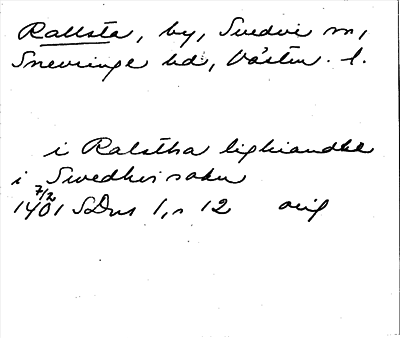 Rallsta, by, Svedvi sn,
Snevringe hd, Västm. l.
i Ralstha lighiandhe
i Swedhwi sokn
7/2
1401 SDns 1, s 12 orig